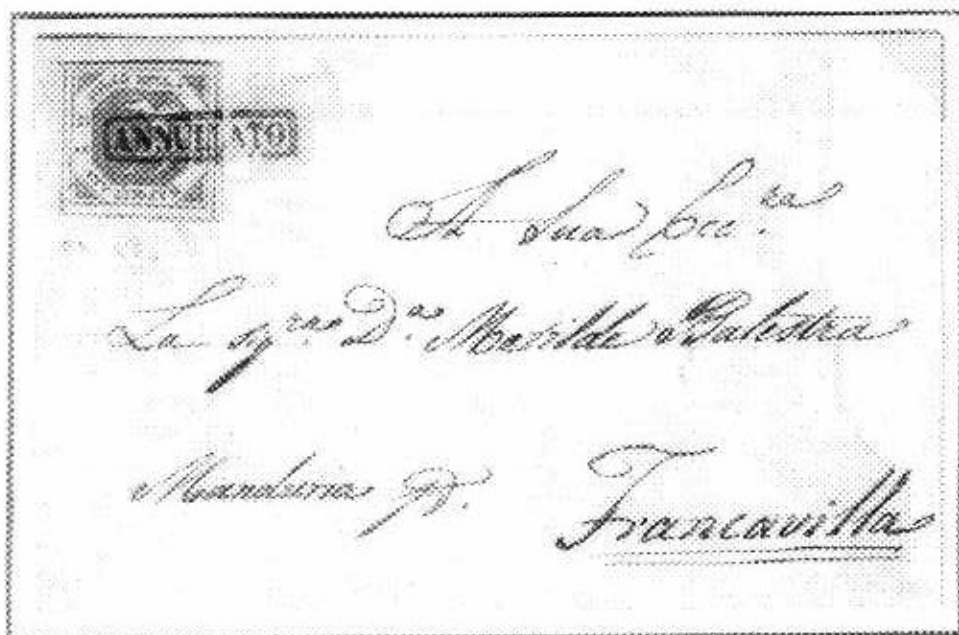 ANNULLATO
A Sua Ecc.ra
La Sig.ra D.a Matilde
Manduria P. Francavilla